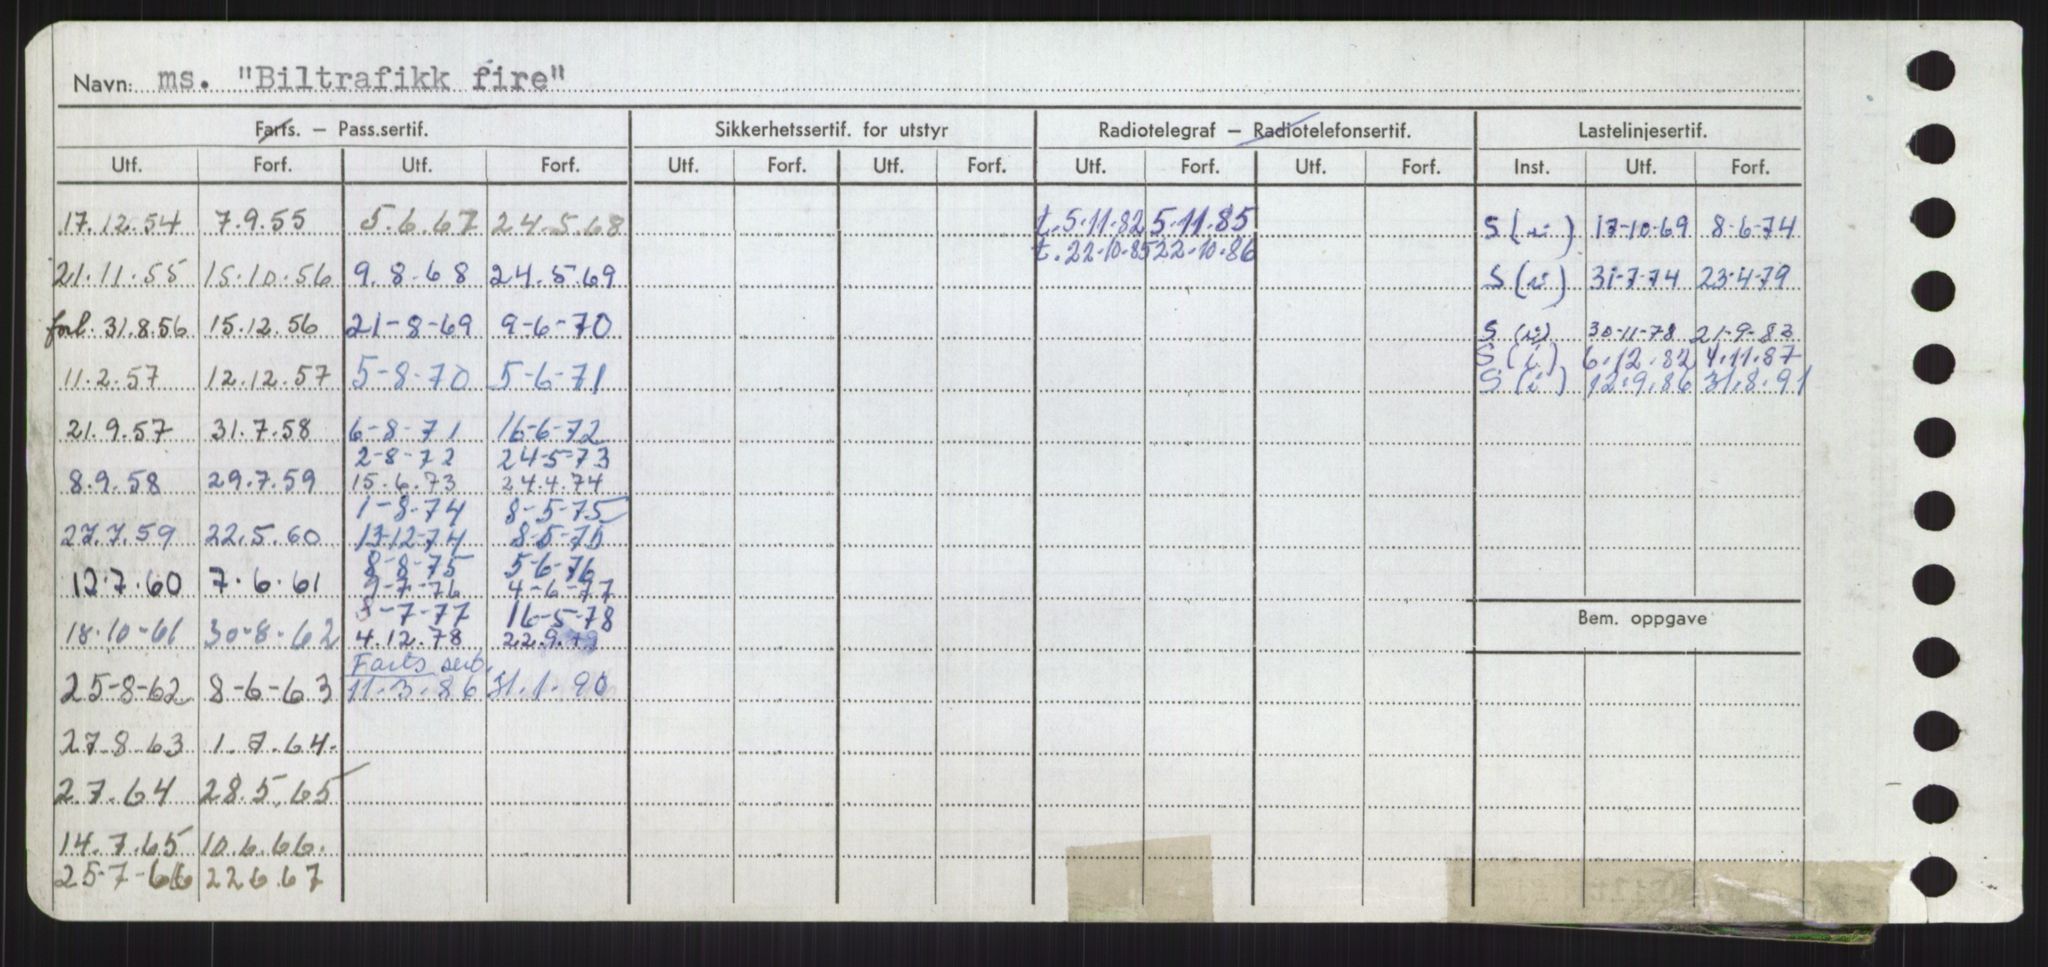 Navn: ms. "Biltrafikk fire"
Farts. – Pass.sertif. Sikkerhetssertif. for utstyr Radiotelegraf – Radiotelefonsertif. Lastelinjesertif.
Utf. Forf. Utf. Forf. Utf. Forf. Utf. Forf. Utf. Forf. Utf. Forf. Inst. Utf. Forf.
17.12.54 7.9.55 5.6.67 24.5.68 t. 5.11.82 5.11.85 S 17-10-69 8-6-74
t. 22.10.85 22.10.86
21.11.55 15.10.56 9.8.68 24.5.69 S 31-7-74 23-4-79
forl. 31.8.56 15.12.56 21-8-69 9-6-70 S 30-11-78 21-9-83
S (i) 6.12.82 4.11.87
11.2.57 12.12.57 5-8-70 5-6-71 S (i) 12.9.86 31.8.91
21.9.57 31.7.58 6-8-71 16-6-72
2-8-72 24-5-73
8.9.58 29.7.59 15.6.73 24.4.74
1-8-74 8-5-75
27.7.59 22.5.60 13-12-74 8-5-75
8-8-75 5-6-76
12.7.60 7.6.61 9-7-76 4-6-77
8-7-77 16-5-78
18-10-61 30-8-62 4.12.78 22.9.79
Bem. oppgave
Farts sert.
25-8-62 8-6-63 11.3.86 31.1.90
27.8.63 1.7.64.
2.7.64 28.5.65
14.7.65 10.6.66.
25-7-66 22 6 67